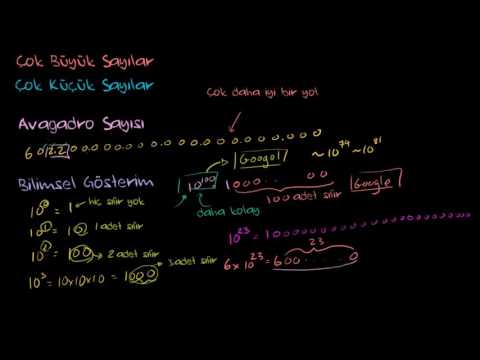 Çok Büyük Sayılar
Çok Küçük Sayılar
çok daha iyi bir yol
Avagadro Sayısı
6 0 2 2 0 0 0 0 0 0 0 0 0 0 0 0 0 0 0 0 0 0 0 0
Googol
~10^74 ~10^81
Bilimsel Gösterim
10^100
1 000.... 00
Google
100 adet sıfır
10^0 = 1 hiç sıfır yok
daha kolay
10^1 = 10 1 adet sıfır
10^23 = 100000000000000000000000
10^2 = 100 2 adet sıfır
23
10^3 = 10x10x10 = 1000 3 adet sıfır
6 x 10^23 = 600.......0